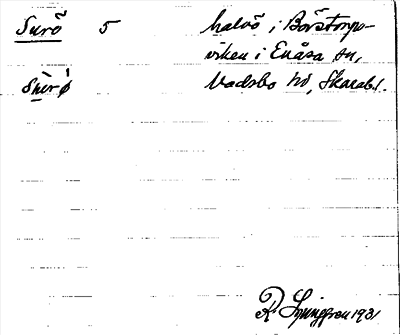 Surö 5 halvö i Börstorps-
viken i Enåsa sn,
Sùrö́ Vadsbo hd, Skarab.l.
R. Ljunggren 1931